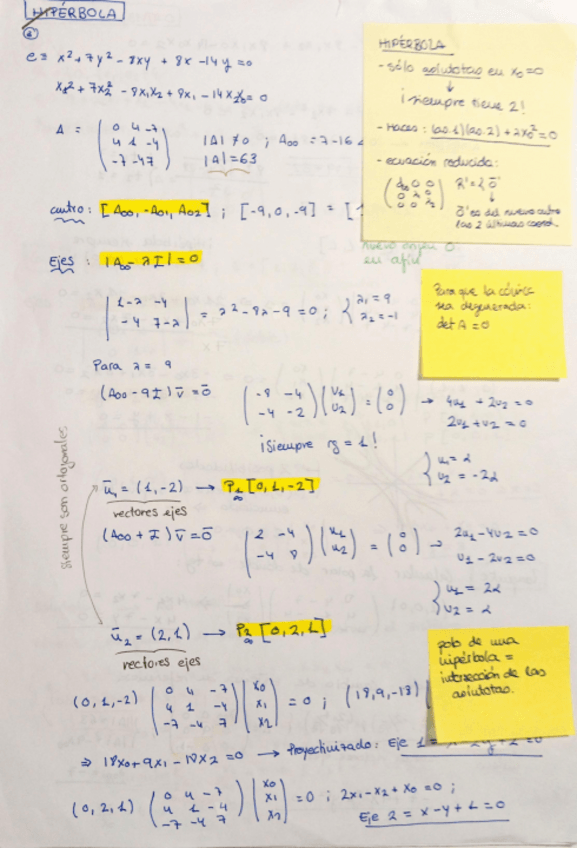 HIPÉRBOLA
a
C ≡ x² + 7y² - 8xy + 8x - 14y = 0
+ 7x₂² - 8x₁x₂ + 8x₁ - 14x₂x₀ = 0
A = ( 0 4 -7
4 1 -4
-7 -4 7 )
|A| ≠ 0 ; A₀₀ = 7-16 <
|A| = 63
centro: [A₀₀, -A₀₁, A₀₂] ; [-9, 0, -9] = [1
nuevo origen O'
en afín
Ejes: |A₀₀ - λI| = 0
| 1-λ -4
-4 7-λ | = λ² - 8λ - 9 = 0 ; { λ₁ = 9
λ₂ = -1
Para λ = 9
(A₀₀ - 9I) v̄ = 0̄ ( -8 -4
-4 -2 ) ( u₁
u₂ ) = ( 0
0 ) → 4u₁ + 2u₂ = 0
2u₁ + u₂ = 0
¡Siempre rg = 1!
{ u₁ = α
u₂ = -2α
ū₁ = (1, -2) → P₁∞ [0, 1, -2]
vectores ejes
siempre son ortogonales
(A₀₀ + I) v̄ = 0̄ ( 2 -4
-4 8 ) ( u₁
u₂ ) = ( 0
0 ) → 2u₁ - 4u₂ = 0
u₁ - 2u₂ = 0
{ u₁ = 2α
u₂ = α
ū₂ = (2, 1) → P₂∞ [0, 2, 1]
vectores ejes
(0, 1, -2) ( 0 4 -7
4 1 -4
-7 -4 7 ) ( x₀
x₁
x₂ ) = 0 ; (18, 9, -18)
⇒ 18x₀ + 9x₁ - 18x₂ = 0 → Proyectivizado: Eje 1 =
(0, 2, 1) ( 0 4 -7
4 1 -4
-7 -4 7 ) ( x₀
x₁
x₂ ) = 0 ; 2x₁ - x₂ + x₀ = 0 ;
Eje 2 = x - y + 1 = 0
HIPÉRBOLA
- sólo asíntotas en x₀ = 0
↓
¡siempre tiene 2!
- Haces: (as.1)(as.2) + λx₀² = 0
- ecuación reducida:
( d₀ 0 0
0 λ₁ 0
0 0 λ₂ ) R' = { O'
O' es del nuevo centro
las 2 últimas coord.
Para que la cónica
sea degenerada:
det A = 0
polo de una
hipérbola =
intersección de las
asíntotas.